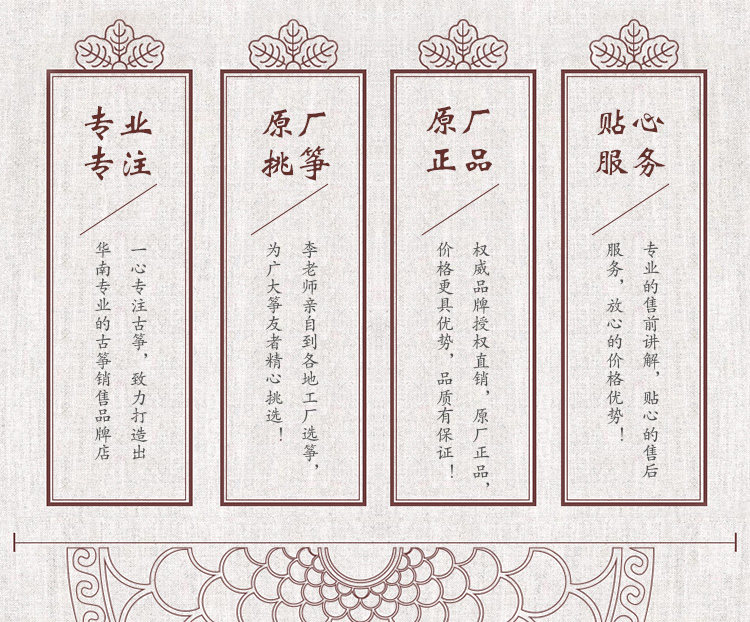 专业
专注
一心专注古筝，致力打造出
华南专业的古筝销售品牌店
原厂
挑筝
李老师亲自到各地工厂选筝，
为广大筝友者精心挑选！
原厂
正品
权威品牌授权直销，原厂正品，
价格更具优势，品质有保证！
贴心
服务
专业的售前讲解，贴心的售后
服务，放心的价格优势！